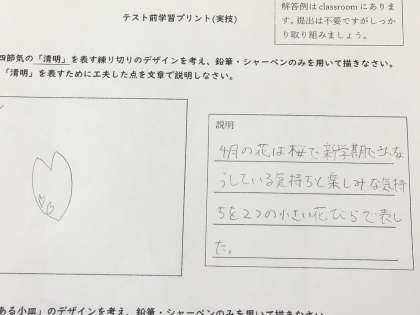 解答例は classroom にありま
す。提出は不要ですがしっか
り取り組みましょう。
テスト前学習プリント(実技)
四節気の「清明」を表す練り切りのデザインを考え、鉛筆・シャーペンのみを用いて描きなさい。
「清明」を表すために工夫した点を文章で説明しなさい。
説明
4月の花は桜で新学期でみんな
うしている気持ちと楽しみな気持
ちを2つの小さい花びらで表し
た。
ある小皿」のデザインを考え、鉛筆・シャーペンのみを用いて描きなさい。